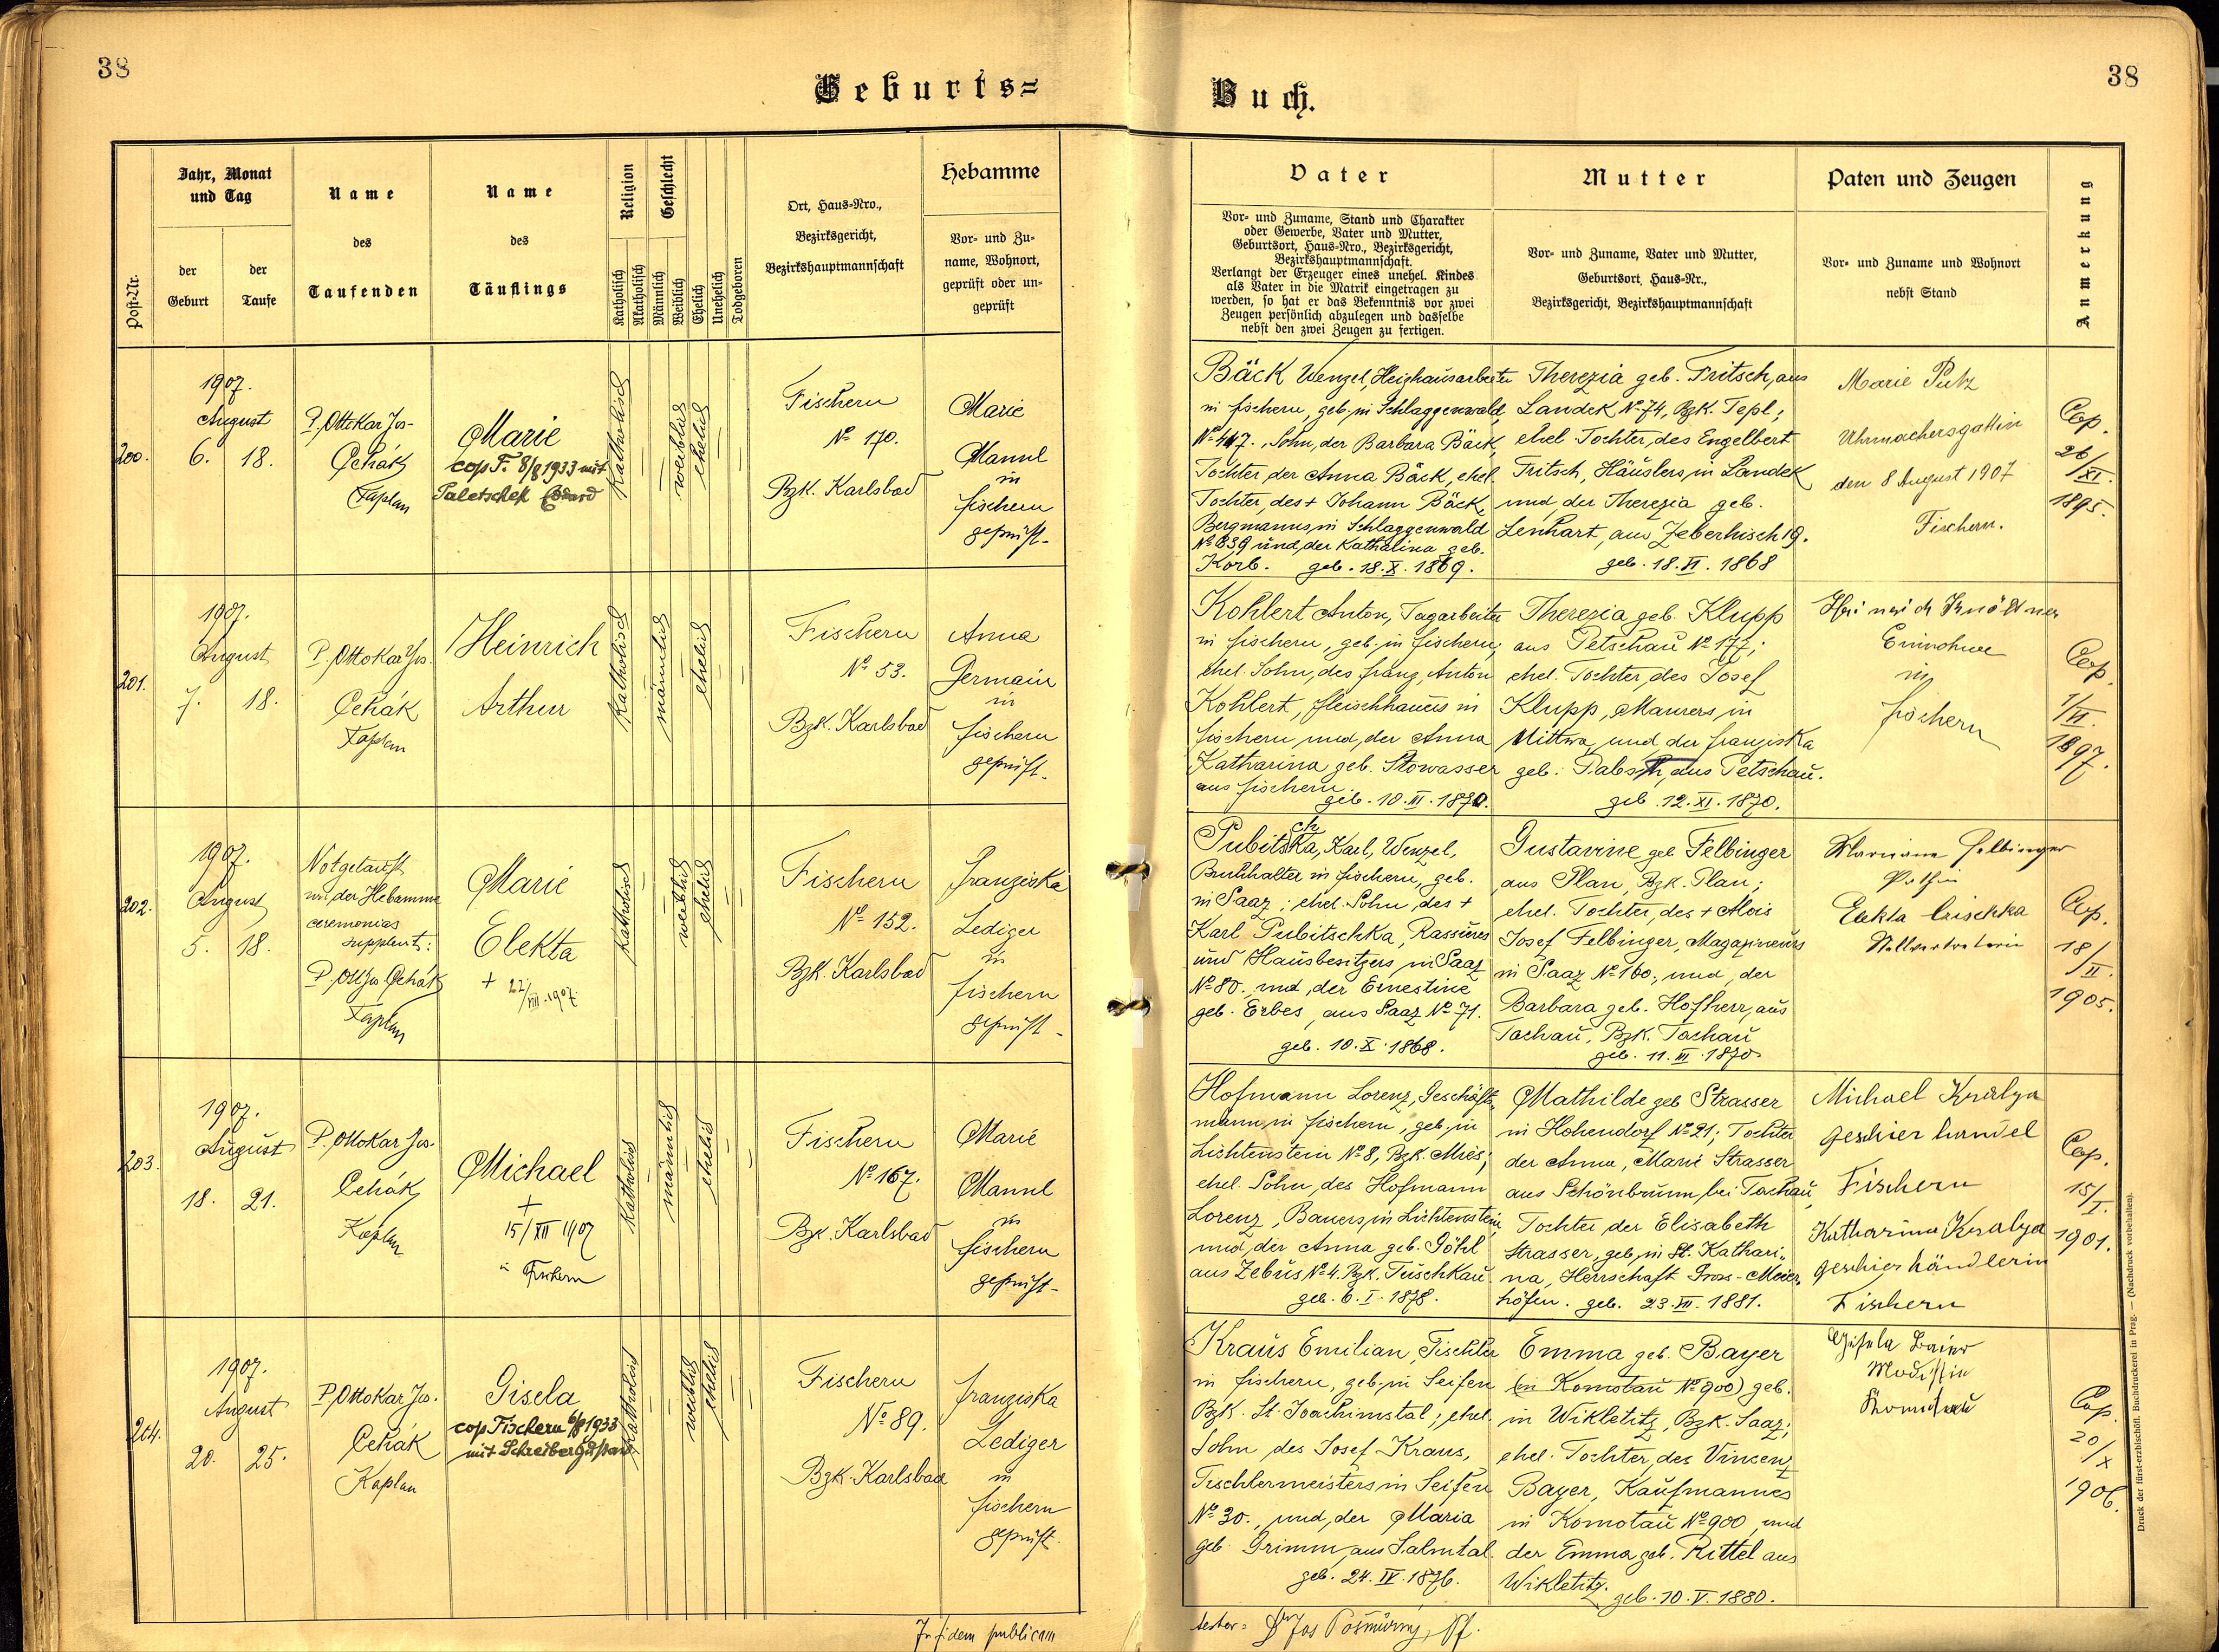 38
Geburts=
Jahr, Monat
und Tag
Name
des
Taufenden
Name
des
Täuflings
Religion
Geschlecht
Ort, Haus-Nro.,
Bezirksgericht,
Bezirkshauptmannschaft
Hebamme
Vor- und Zu-
name, Wohnort,
geprüft oder un-
geprüft
Post-Nr.
der
Geburt
der
Taufe
Katholisch
Akatholisch
Männlich
Weiblich
Ehelich
Unehelich
Todgeboren
200.
1907.
August
6. 18.
P. Ottokar Jos.
Čehák
Kaplan
Marie
cop F. 8/8 1933 mit
Paletschek Eduard
Katholisch
weiblich
ehelich
Fischern
No 170.
Bzk. Karlsbad
Marie
Mannl
in
Fischern
geprüft.
201.
1907.
August
7. 18.
P. Ottokar Jos.
Čehák
Kaplan
Heinrich
Arthur
Katholisch
männlich
ehelich
Fischern
No 53.
Bzk. Karlsbad
Anna
Germain
in
Fischern
geprüft.
202.
1907.
August
5. 18.
Notgetauft
von der Hebamme
ceremonias
supplevit:
P. Ott Jos Čehák
Kaplan
Marie
Elekta
+ 22/VIII. 1907.
Katholisch
weiblich
ehelich
Fischern
No 152.
Bzk. Karlsbad
Franziska
Lediger
in
Fischern
geprüft.
203.
1907.
August
18. 21.
P. Ottokar Jos.
Čehák
Kaplan
Michael
+
15/XII 1907
in Fischern
Katholisch
männlich
ehelich
Fischern
No 167.
Bzk. Karlsbad
Marie
Mannl
in
Fischern
geprüft.
204.
1907.
August
20. 25.
P. Ottokar Jos.
Čehák
Kaplan
Gisela
cop Fischern 6/8 1933
mit Schreiber Gustav
Katholisch
weiblich
ehelich
Fischern
No 89.
Bzk. Karlsbad
Franziska
Lediger
in
Fischern
geprüft.
In fidem publicam
38
Buch.
Vater
Vor- und Zuname, Stand und Charakter
oder Gewerbe, Vater und Mutter,
Geburtsort, Haus-Nro., Bezirksgericht,
Bezirkshauptmannschaft.
Verlangt der Erzeuger eines unehel. Kindes
als Vater in die Matrik eingetragen zu
werden, so hat er das Bekenntnis vor zwei
Zeugen persönlich abzulegen und dasselbe
nebst den zwei Zeugen zu fertigen.
Mutter
Vor- und Zuname, Vater und Mutter,
Geburtsort, Haus-Nr.,
Bezirksgericht, Bezirkshauptmannschaft
Paten und Zeugen
Vor- und Zuname und Wohnort
nebst Stand
Anmerkung
Bäck Wenzel, Heizhausarbeiter
in Fischern, geb. in Schlaggenwald,
No 417., Sohn, der Barbara Bäck,
Tochter der Anna Bäck, ehel.
Tochter, des + Johann Bäck,
Bergmanns, in Schlaggenwald
No 839 und, der Katharina geb.
Korb. geb. 18. X. 1869.
Therezia geb. Fritsch, aus
Landek No 74, Bzk. Tepl;
ehel. Tochter, des Engelbert
Fritsch, Häuslers, in Landek
und, der Therezia geb.
Lenhart, aus Zeberhisch 19.
geb. 18. VI. 1868
Marie Putz
Uhrmachersgattin
den 8 August 1907
Fischern.
Cop.
26/XI.
1895.
Kohlert Anton, Tagarbeiter
in Fischern, geb. in Fischern,
ehel. Sohn, des Franz, Anton
Kohlert, Fleischhauers in
Fischern und, der Anna
Katharina geb. Stowasser
aus Fischern.
geb. 10. III. 1870.
Therezia geb. Klupp
aus Petschau No 177;
ehel. Tochter, des Josef
Klupp, Maurers, in
Mittwa, und der Franziska
geb. Pabsth, aus Petschau.
geb. 12. XI. 1870.
Heinrich Knöttner
in
Fischern
Cop.
1/VI.
1897.
Pubitschka, Karl, Wenzel,
Buchhalter in Fischern, geb.
in Saaz; ehel. Sohn, des +
Karl Pubitschka, Rassiers
und Hausbesitzers, in Saaz
No 80. und, der Ernestine
geb. Erbes, aus Saaz No 71.
geb. 10. X. 1868.
Gustavine geb. Felbinger
aus Plan, Bzk. Plan;
ehel. Tochter, des + Alois
Josef Felbinger, Magazineurs
in Saaz No 160., und, der
Barbara geb. Hofherr, aus
Tachau, Bzk. Tachau
geb. 11. III. 1870.
Mariane Felbinger
Pathin
Elekta Crischka
Stellvertreterin
Cop.
18/II.
1905.
Hofmann Lorenz, Geschäfts-
mann, in Fischern, geb. in
Lichtenstein No 8, Bzk. Mies;
ehel. Sohn, des Hofmann
Lorenz, Bauers, in Lichtenstein,
und, der Anna geb. Göhl
aus Zebus No 4. Bzk. Tuschkau.
geb. 6. I. 1878.
Mathilde geb Strasser
in Hohendorf No 21; Tochter
der Anna, Marie Strasser
aus Schönbrunn, bei Tachau,
Tochter der Elisabeth
Strasser, geb. in St. Kathari-
na, Herrschaft Gross-Meier-
höfen. geb. 23. VII. 1881.
Michael Kralya
geschier handel
Fischern
Katharina Kralya
geschier händlerin
Fischern
Cop.
15/I.
1901.
Kraus Emilian, Tischler
in Fischern, geb. in Seifen
Bzk. St. Joachimstal; ehel.
Sohn des Josef Kraus,
Tischlermeisters in Seifen
No 30., und, der Maria
geb. Grimm, aus Salmtal.
geb. 24. IV. 1876.
Emma geb. Bayer
(in Komotau No 900) geb.
in Wikletitz, Bzk. Saaz;
ehel. Tochter, des Vincenz
Bayer, Kaufmannes
in Komotau No 900, und
der Emma geb. Rittel aus
Wikletitz.
geb. 10. V. 1880.
Gisela Baier
Modistin
Komotau
Cop.
20/X
1906.
Druck der fürst-erzbischöfl. Buchdruckerei in Prag. — (Nachdruck vorbehalten).